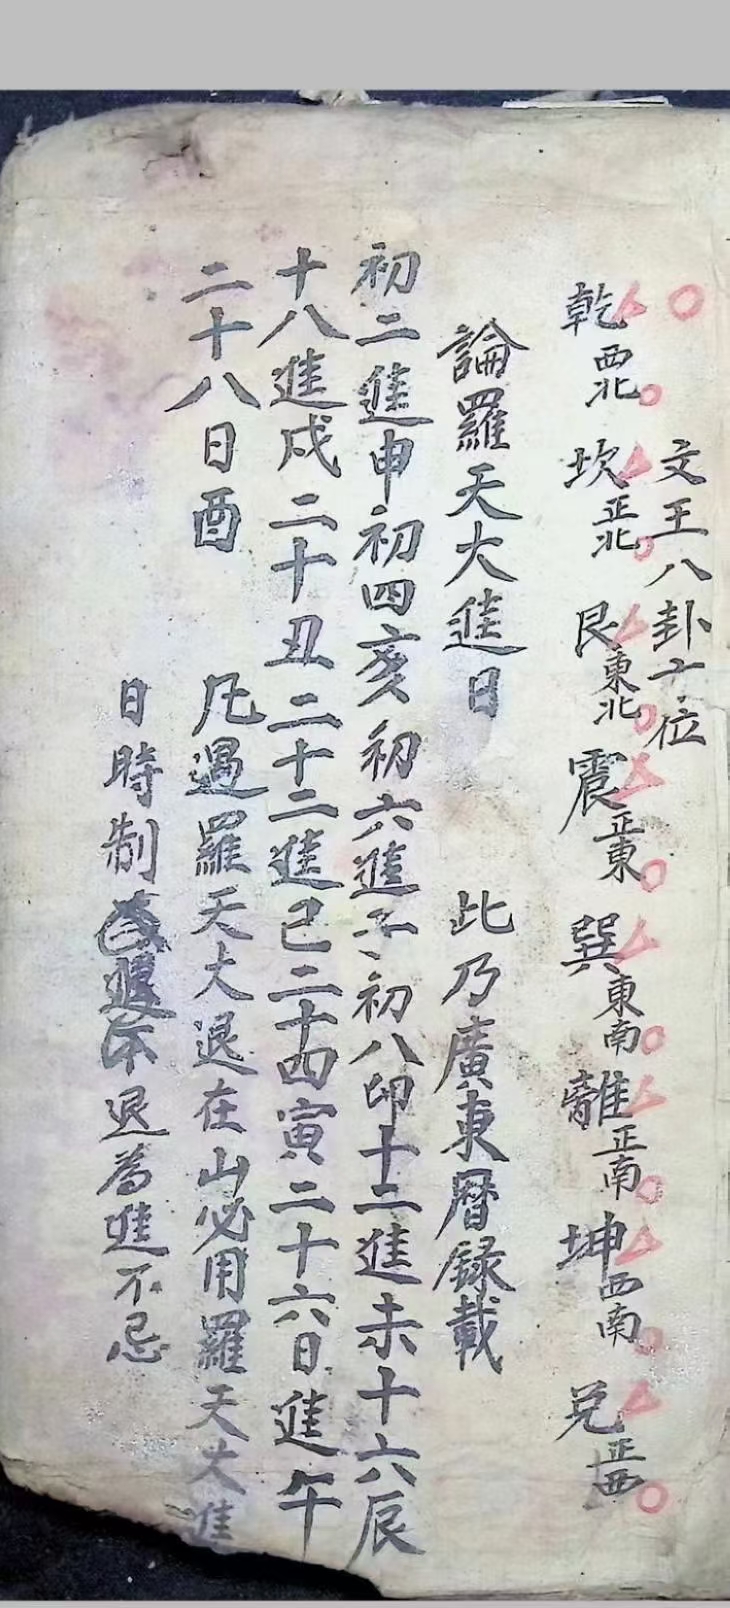 文王八卦位
乾西北 坎正北 艮東北 震正東 巽東南 離正南 坤西南 兌正西
論羅天大進日 此乃廣東曆録載
初二進申初四亥初六進子初八卯十二進未十六辰
十八進戌二十丑二十二進己二十四寅二十六日進午
二十八日酉 凡遇羅天大退在山必用羅天大進
日時制退為進不忌